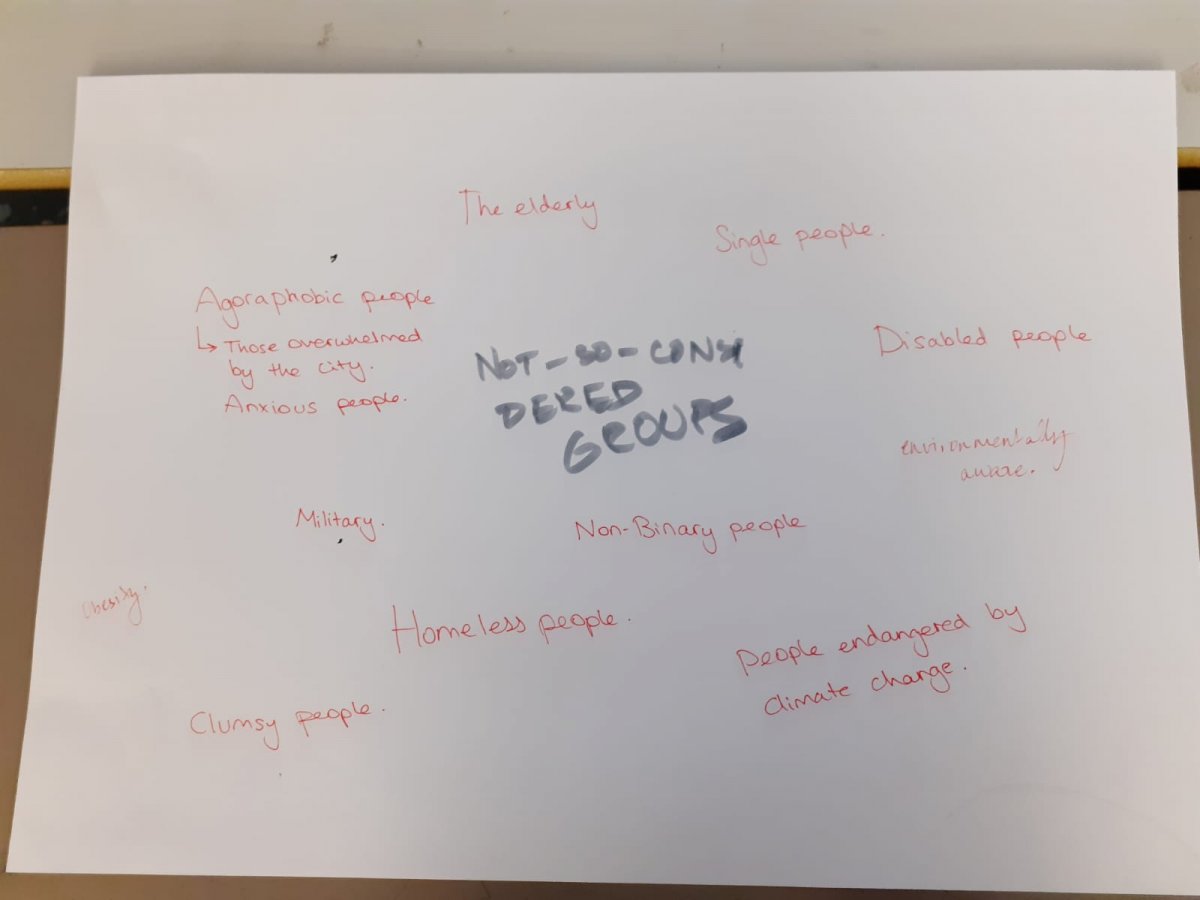 The elderly
Single people.
Agoraphobic people
↳ Those overwhelmed
by the city.
Anxious people.
NOT-SO-CONSI
DERED
GROUPS
Disabled people
environmentally
aware.
Military.
Non-Binary people
Obesity.
Homeless people.
People endangered by
climate change.
Clumsy people.